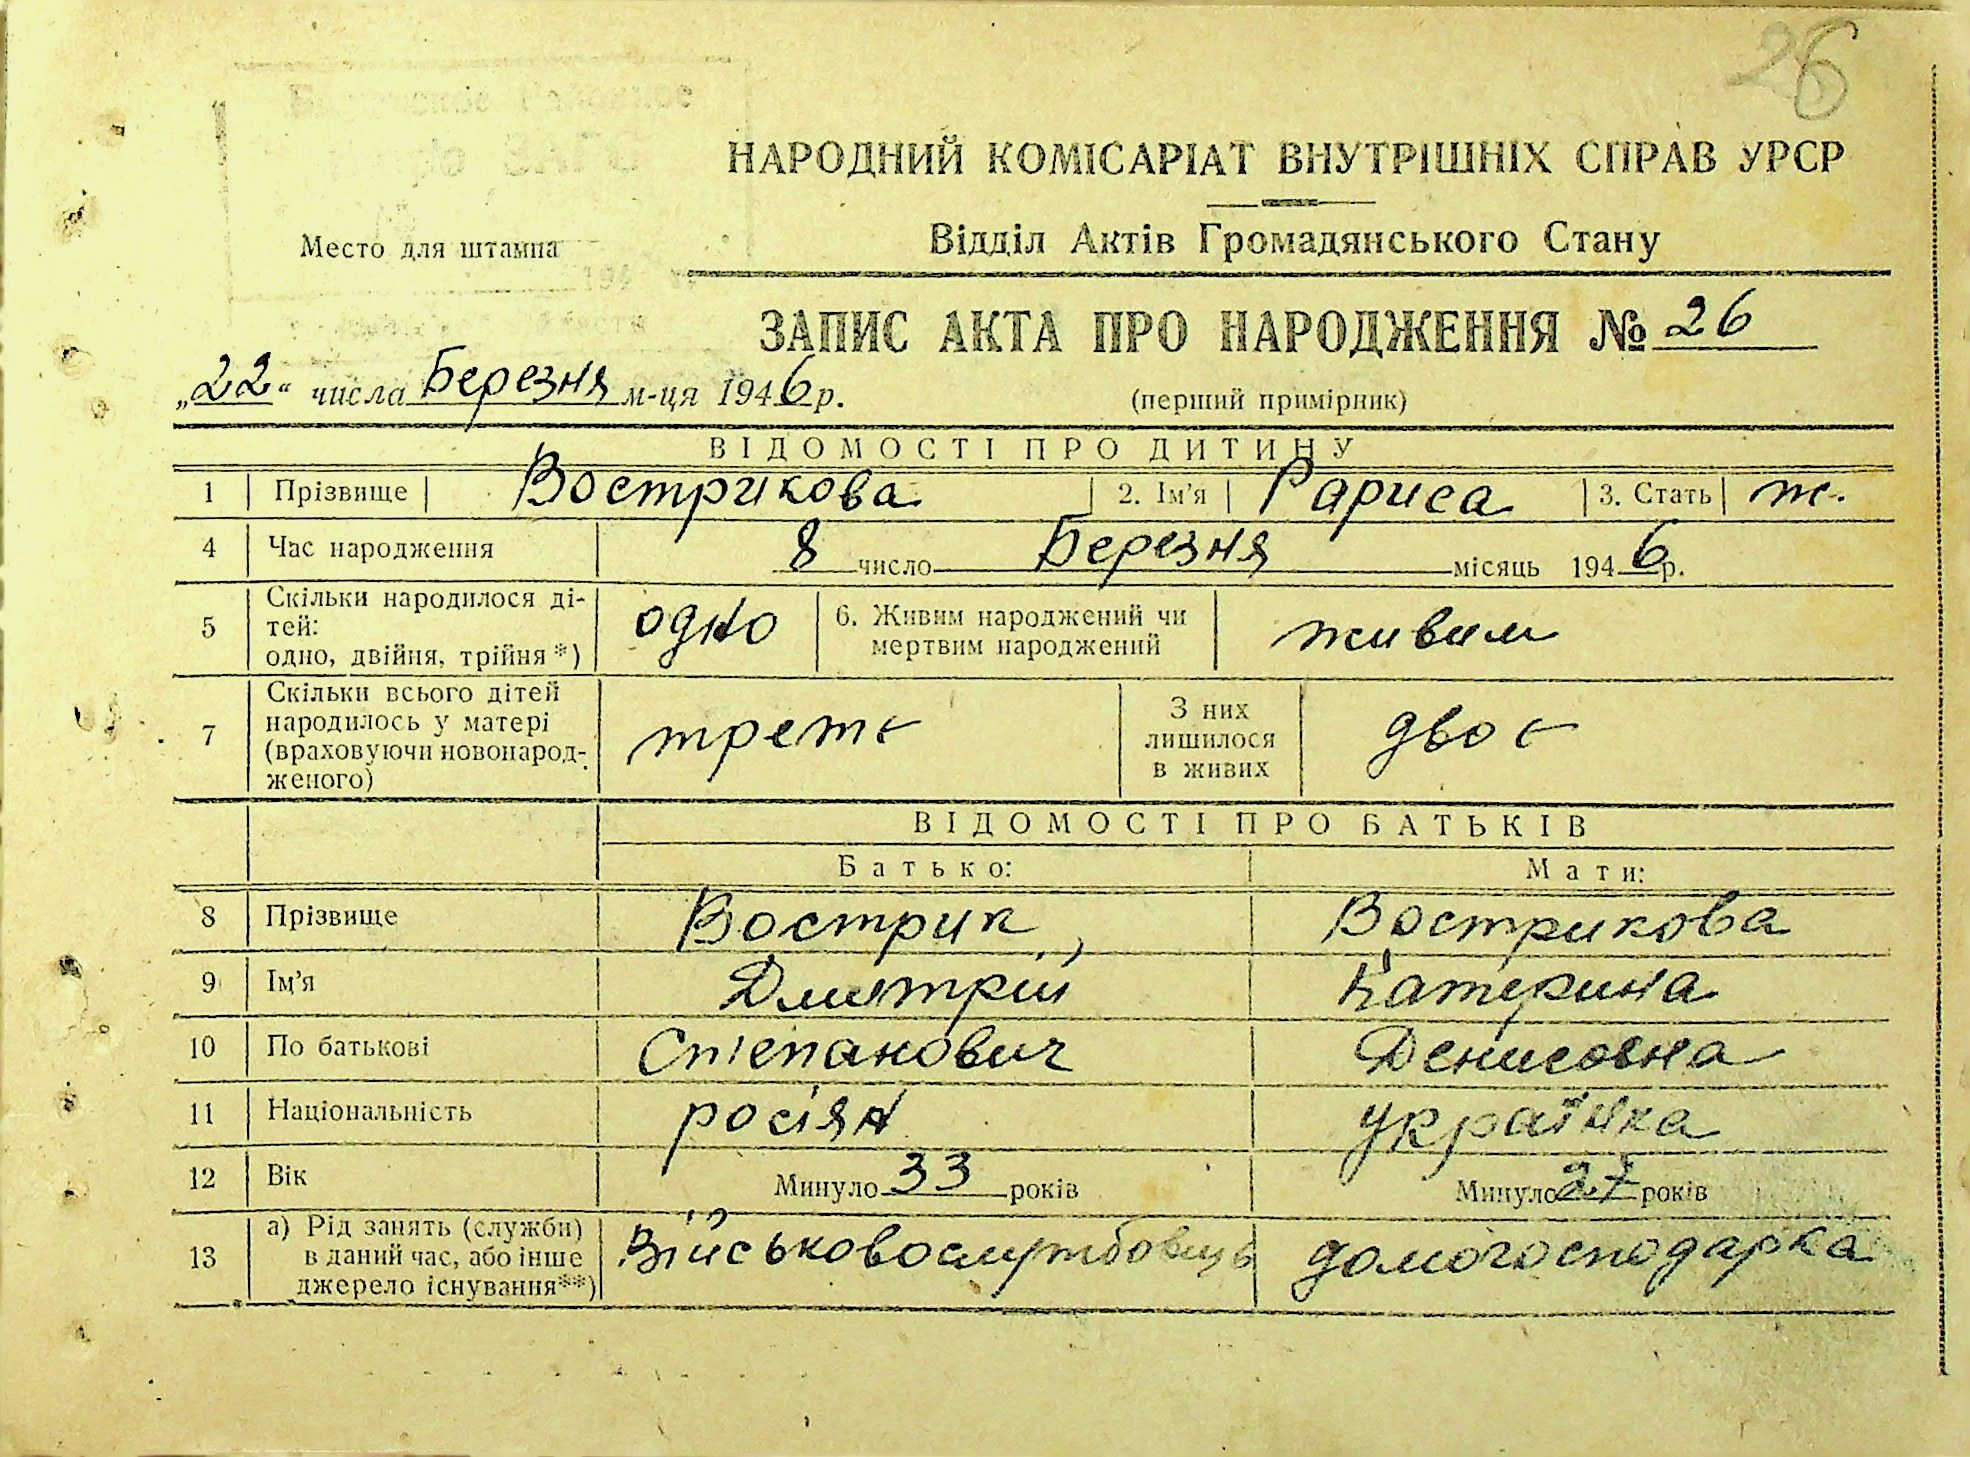 26
НАРОДНИЙ КОМІСАРІАТ ВНУТРІШНІХ СПРАВ УРСР
Відділ Актів Громадянського Стану
Место для штампа
ЗАПИС АКТА ПРО НАРОДЖЕННЯ № 26
„22“ числа Березня м-ця 1946 р.
(перший примірник)
ВІДОМОСТІ ПРО ДИТИНУ
1 Прізвище Вострикова 2. Ім'я Рариса 3. Стать ж.
4 Час народження 8 число Березня місяць 1946 р.
5 Скільки народилося ді-
тей:
одно, двійня, трійня *) одно 6. Живим народжений чи
мертвим народжений живим
7 Скільки всього дітей
народилось у матері
(враховуючи новонарод-
женого) третє З них
лишилося
в живих двоє
ВІДОМОСТІ ПРО БАТЬКІВ
Батько: Мати:
8 Прізвище Вострик Вострикова
9 Ім'я Дмитрій Катерина
10 По батькові Степанович Денисовна
11 Національність росіян українка
12 Вік Минуло 33 років Минуло 27 років
13 а) Рід занять (служби)
в даний час, або інше
джерело існування**) Військовослужбовець домогосподарка